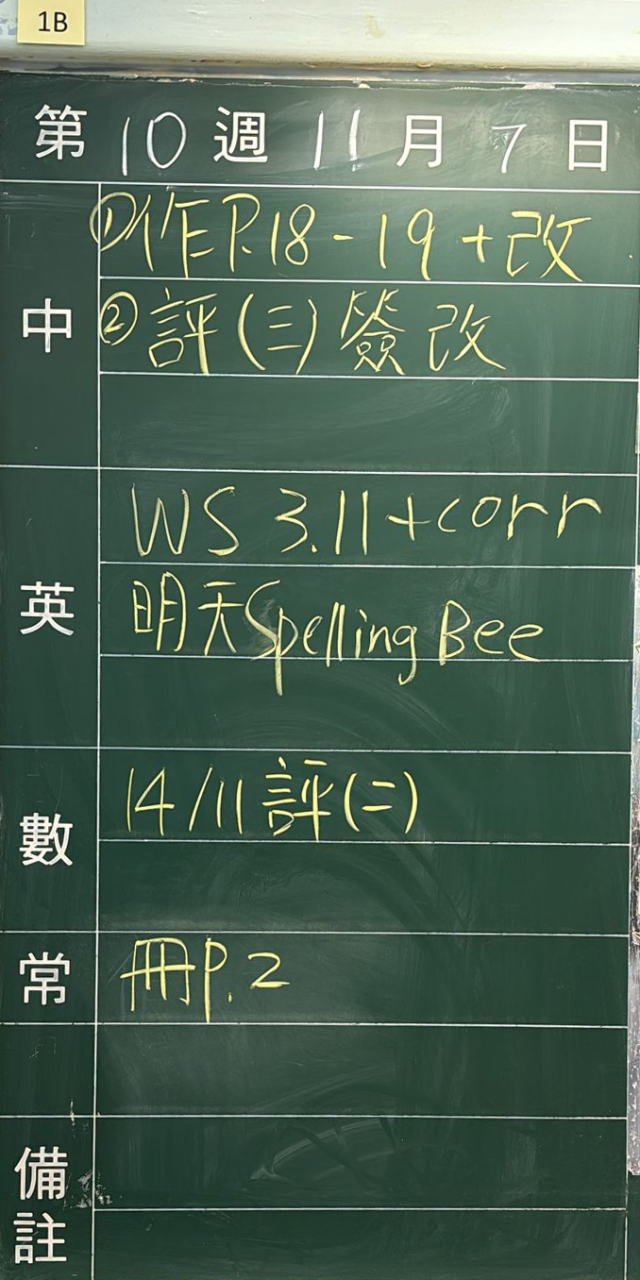 1B
第10週11月7日
中
①作P.18-19+改
②評(三)簽改
英
WS 3.11+corr
明天Spelling Bee
數
14/11評(二)
常
冊P.2
備註